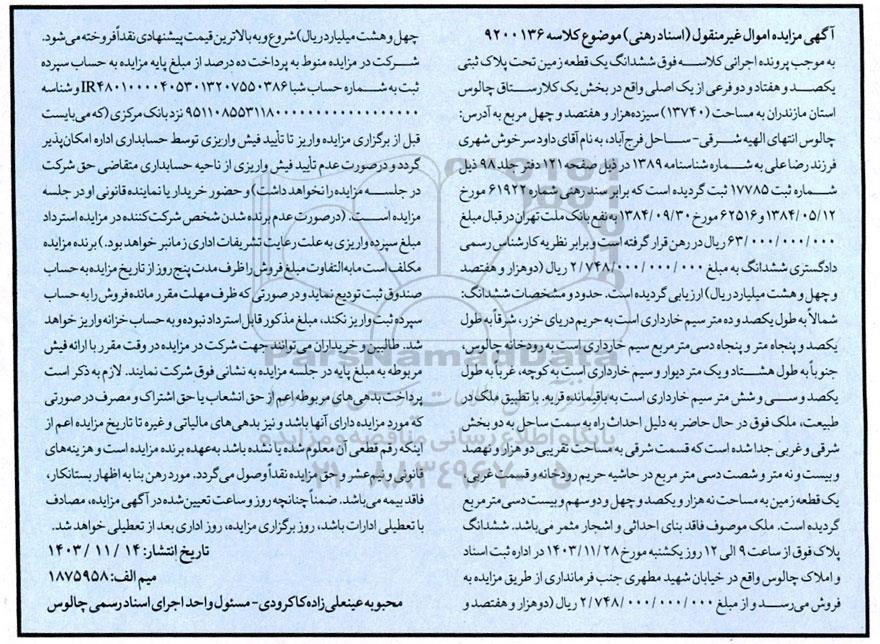 آگهی مزایده اموال غیرمنقول (اسناد رهنی) موضوع کلاسه ۹۲۰۰۱۳۶
به موجب پرونده اجرائی کلاسه فوق ششدانگ یک قطعه زمین تحت پلاک ثبتی
یکصد و هفتاد و دو فرعی از یک اصلی واقع در بخش یک کلارستاق چالوس
استان مازندران به مساحت (۱۳۷۴۰) سیزده‌هزار و هفتصد و چهل مربع به آدرس:
چالوس انتهای الهیه شرقی- ساحل فرج‌آباد، به نام آقای داود سرخوش شهری
فرزند رضا علی به شماره شناسنامه ۱۳۸۹ در ذیل صفحه ۱۲۱ دفتر جلد ۹۸ ذیل
شماره ثبت ۱۷۷۸۵ ثبت گردیده است که برابر سند رهنی شماره ۶۱۹۲۲ مورخ
۱۳۸۴/۰۵/۱۲ و ۶۲۵۱۶ مورخ ۱۳۸۴/۰۹/۳۰ به نفع بانک ملت تهران در قبال مبلغ
۶۳/۰۰۰/۰۰۰/۰۰۰ ریال در رهن قرار گرفته است و برابر نظریه کارشناس رسمی
دادگستری ششدانگ به مبلغ ۲/۷۴۸/۰۰۰/۰۰۰/۰۰۰ ریال (دوهزار و هفتصد
و چهل و هشت میلیارد ریال) ارزیابی گردیده است. حدود و مشخصات ششدانگ:
شمالاً به طول یکصد و ده متر سیم خارداری است به حریم دریای خزر، شرقاً به طول
یکصد و پنجاه متر و پنجاه دسی‌متر مربع سیم خارداری است به رودخانه چالوس،
جنوباً به طول هشتاد و یک متر دیوار و سیم خارداری است به کوچه، غرباً به طول
یکصد و سی و شش متر سیم خارداری است به باقیمانده قریه. با تطبیق ملک در
طبیعت، ملک فوق در حال حاضر به دلیل احداث راه به سمت ساحل به دو بخش
شرقی و غربی جدا شده است که قسمت شرقی به مساحت تقریبی دو هزار و نهصد
و بیست و نه متر و شصت دسی متر مربع در حاشیه حریم رودخانه و قسمت غربی،
یک قطعه زمین به مساحت نه هزار و یکصد و چهل و دو سهم و بیست دسی متر مربع
گردیده است. ملک موصوف فاقد بنای احداثی و اشجار مثمر می‌باشد. ششدانگ
پلاک فوق از ساعت ۹ الی ۱۲ روز یکشنبه مورخ ۱۴۰۳/۱۱/۲۸ در اداره ثبت اسناد
و املاک چالوس واقع در خیابان شهید مطهری جنب فرمانداری از طریق مزایده به
فروش می‌رسد و از مبلغ ۲/۷۴۸/۰۰۰/۰۰۰/۰۰۰ ریال (دوهزار و هفتصد و
چهل و هشت میلیارد ریال) شروع و به بالاترین قیمت پیشنهادی نقداً فروخته می‌شود.
شرکت در مزایده منوط به پرداخت ده درصد از مبلغ پایه مزایده به حساب سپرده
ثبت به شماره حساب شبا IR۴۸۰۱۰۰۰۰۴۰۵۳۰۱۳۲۰۷۵۵۰۳۸۶ و شناسه
نزد بانک مرکزی (که می‌بایست
قبل از برگزاری مزایده واریز تا تأیید فیش واریزی توسط حسابداری اداره امکان‌پذیر
گردد و درصورت عدم تأیید فیش واریزی از ناحیه حسابداری متقاضی حق شرکت
در جلسه مزایده را نخواهد داشت) و حضور خریدار یا نماینده قانونی او در جلسه
مزایده است. (درصورت عدم برنده شدن شخص شرکت‌کننده در مزایده استرداد
مبلغ سپرده واریزی به علت رعایت تشریفات اداری زمانبر خواهد بود.) برنده مزایده
مکلف است مابه‌التفاوت مبلغ فروش را ظرف مدت پنج روز از تاریخ مزایده به حساب
صندوق ثبت تودیع نماید و در صورتی که ظرف مهلت مقرر مانده فروش را به حساب
سپرده ثبت واریز نکند، مبلغ مذکور قابل استرداد نبوده و به حساب خزانه واریز خواهد
شد. طالبین و خریداران می‌توانند جهت شرکت در مزایده در وقت مقرر با ارائه فیش
مربوطه به مبلغ پایه در جلسه مزایده به نشانی فوق شرکت نمایند. لازم به ذکر است
پرداخت بدهی‌های مربوطه اعم از حق انشعاب یا حق اشتراک و مصرف در صورتی
که مورد مزایده دارای آنها باشد و نیز بدهی‌های مالیاتی و غیره تا تاریخ مزایده اعم از
اینکه رقم قطعی آن معلوم شده یا نشده باشد به‌عهده برنده مزایده است و هزینه‌های
قانونی و نیم‌عشر و حق مزایده نقداً وصول می‌گردد. مورد رهن بنا به اظهار بستانکار،
فاقد بیمه می‌باشد. ضمناً چنانچه روز و ساعت تعیین شده در آگهی مزایده، مصادف
با تعطیلی ادارات باشد، روز برگزاری مزایده، روز اداری بعد از تعطیلی خواهد شد.
تاریخ انتشار: ۱۴ / ۱۱ / ۱۴۰۳
میم الف: ۱۸۷۵۹۵۸
محبوبه عینعلی زاده کاکرودی- مسئول واحد اجرای اسناد رسمی چالوس
ParsNamadData
پایگاه اطلاع رسانی مناقصه و مزایده
۰۲۱-۸۸۳۴۹۶۷۰-۵